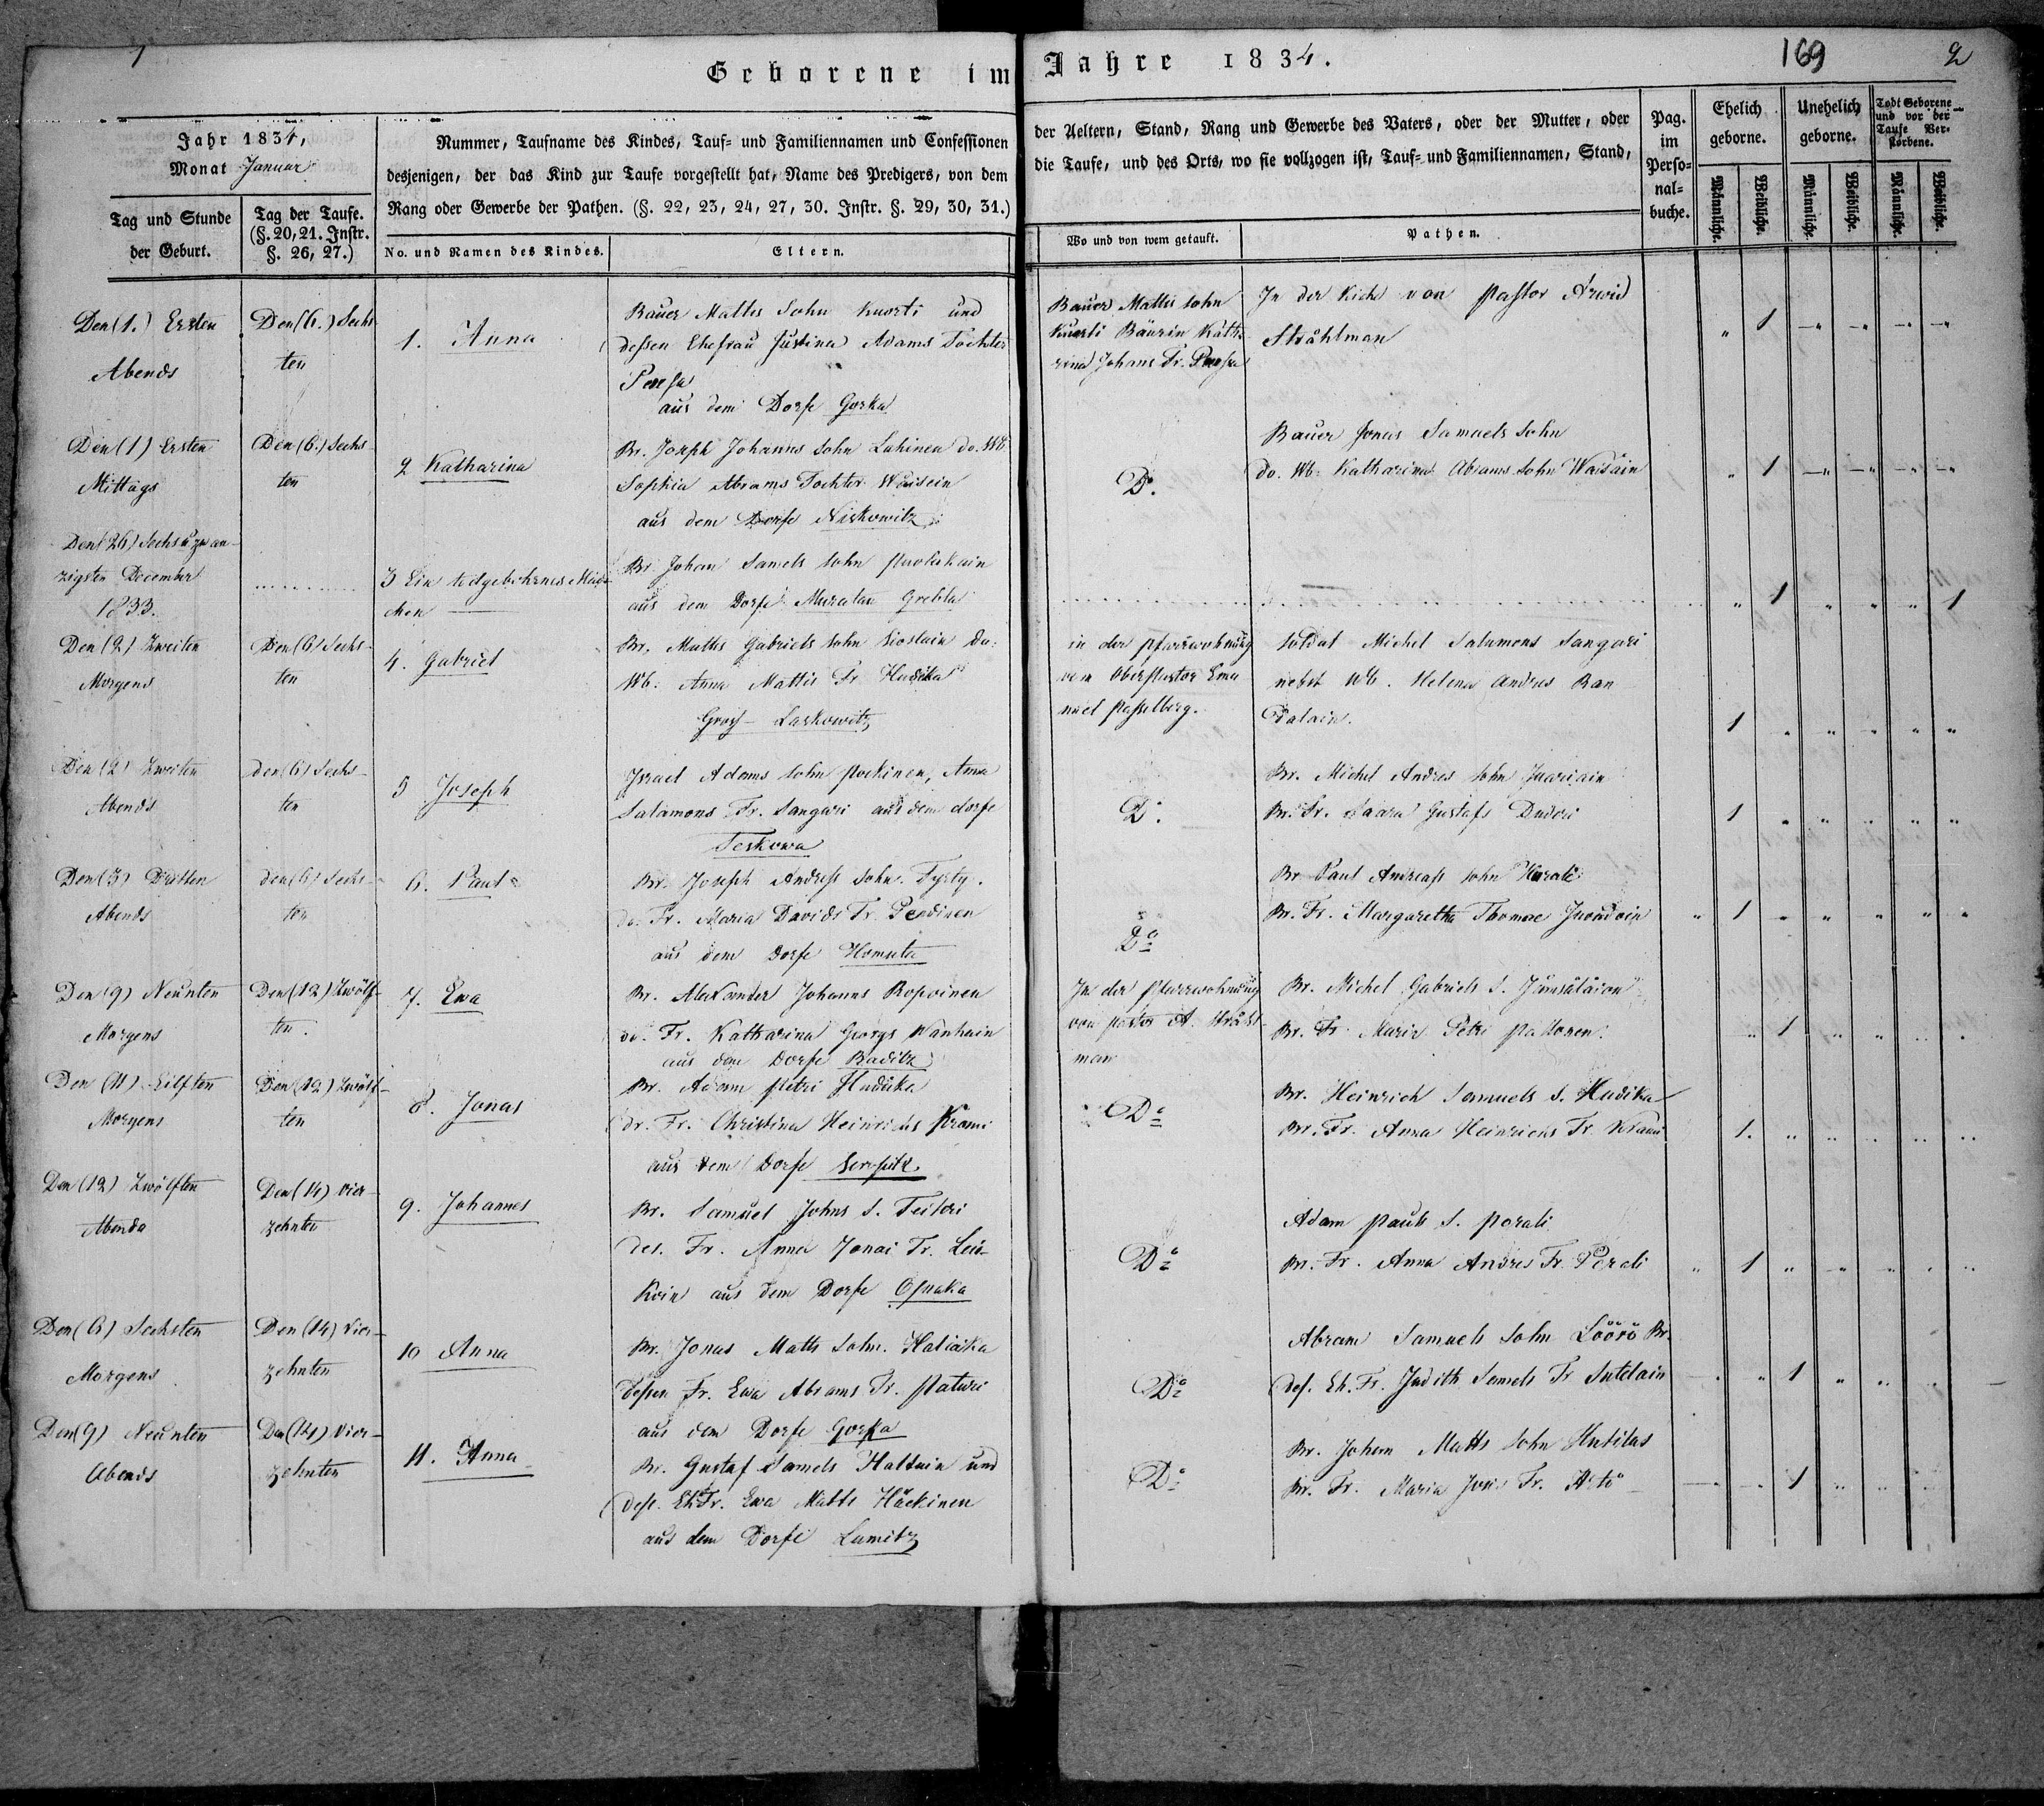 1
Geborene im Jahre 1834.
169
2
Jahr 1834,
Monat Januar
Tag und Stunde
der Geburt.
Tag der Taufe.
(§. 20, 21. Instr.
§. 26, 27.)
Nummer, Taufname des Kindes, Tauf- und Familiennamen und Confessionen
desjenigen, der das Kind zur Taufe vorgestellt hat, Name des Predigers, von dem
Rang oder Gewerbe der Pathen. (§. 22, 23, 24, 27, 30. Instr. §. 29, 30, 31.)
No. und Namen des Kindes.
Eltern.
der Aeltern, Stand, Rang und Gewerbe des Vaters, oder der Mutter, oder
die Taufe, und des Orts, wo sie vollzogen ist, Tauf- und Familiennamen, Stand,
Wo und von wem getauft.
Pathen.
Pag.
im
Perso-
nal-
buche.
Ehelich
geborne.
Unehelich
geborne.
Todt Geborene
und vor der
Taufe Ver-
storbene.
Männliche.
Weibliche.
Männliche.
Weibliche.
Männliche.
Weibliche.
Den (1.) Ersten
Abends
Den (6.) Sechs
ten
1. Anna
Bauer Matts Sohn Kuorti und
dessen Ehefrau Justina Adams Tochter
aus dem Dorfe Gorka
Bauer Matts sohn
Kuorti Bäurin Kath-
rina Johans Tr.
In der Kirche von Pastor Arwid
Stråhlman
1
Den (1) Ersten
Mittags
Den (6.) Sechs
ten
2 Katharina
Br. Joseph Johanns sohn Lahinen do. Wb
Sophia Abrams Tochter
aus dem Dorfe Niskowitz
Do.
Bauer Jonas Samuels sohn
do. Wb. Katharina Abrams sohn Waisäin
1
Den (26) Sechs u zwan-
zigsten December
1833.
3 Ein todtgebohrnes Mäd-
chen
Br. Johan Samels sohn
aus dem Dorfe Muratan Grebla
1
1
Den (2) Zweiten
Morgens
Den (6) Sechs-
ten
4. Gabriel
Br. Matts Gabriels sohn do.
Wb. Anna Mattis Tr. Hudika
Gross-Laskowitz
in der Pfarrwohnung
vom Oberpastor Ema
nuel
Soldat Michel Salamons Sangari
nebst Wb. Helena Andres Ran
Palain.
1
Den (2) Zweiten
Abends
den (6) Sechs-
ten
5 Joseph
Israel Adams sohn Pockinen, Anna
Salamons Tr. Sangari aus dem dorfe
Teskowa
Do.
Br. Michel Andres sohn
Br. Fr. Saara Gustafs Duderi
1
Den (3) Dritten
Abends
den (6) Sechs-
ten
6. Paul
Br. Joseph Andress sohn. Tyrty.
do. Fr. Maria Davids Tr. Pendinen
aus dem Dorfe Homuta
Do
Br Paul Andreass sohn
Br. Fr. Margaretha Thomae
1
Den (9) Neunten
Morgens
Den (12) Zwölf-
ten.
7. Ewa
Br. Alexander Johanns Ropoinen
do. Fr. Katharina Georgs Wanhain
aus dem Dorfe Raditz
In der Pfarrwohnung
von Pastor A. Stråhl-
man
Br. Michel Gabriels S. Jämsäläion
Br. Fr. Maria Petri Pattonen.
1
Den (11) Eilften
Morgens
Den (12) Zwölf-
ten
8. Jonas
Br. Adam Petri Hudika
dr. Fr. Christina Heinrichs Krami
aus dem Dorfe
Do
Br. Heinrich Samuels S. Hudika
Br. Fr. Anna Heinrichs Tr. Krami
1.
Den (12) Zwölften
Abends
Den (14) Vier-
zehnten
9. Johannes
Br. Samuel Johns S. Teiteri
des. Fr. Anna Jonai Tr. Leis-
koin aus dem Dorfe Osnaka
Do
Adam Pauls S. Porali
Br. Fr. Anna Andres Tr. Perali
1
Den (6) Sechsten
Morgens
Den (14) Vier-
zehnten
10 Anna
Br. Jonas Matts Sohn. Haliaika
dessen Fr. Ewa Abrams Tr. Paturi
aus dem Dorfe Gorka
Do
Abram Samuels sohn Löörö Br.
des. Eh. Fr. Judith Samels Tr Sutelain
1
Den (9) Neunten
Abends
Den (14) Vier-
zehnten
11. Anna
Br. Gustaf Samels Haltuin und
dess. Eh. Fr. Ewa Matts Häckinen
aus dem Dorfe Lamitz
Do
Br. Johan Matts sohn Hutilas
Br. Fr. Maria Tr.
1